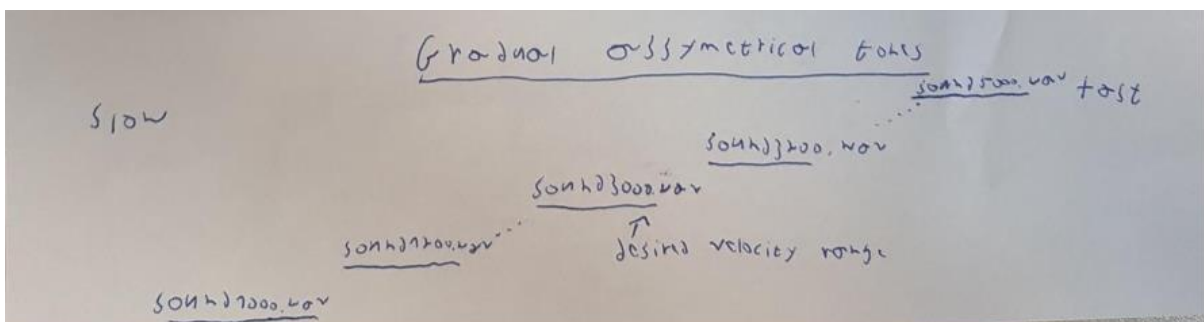 Gradual assymetrical tones
sound5000.wav fast
Slow
sound3200.wav
sound3000.wav
sound1200.wav
desired velocity range
sound1000.wav